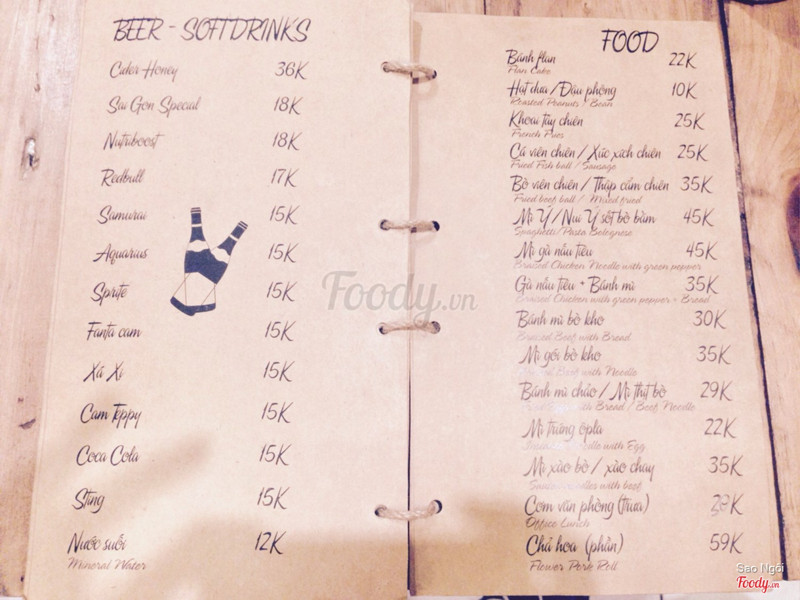 BEER - SOFTDRINKS
Cider Honey 36K
Sai Gon Special 18K
Nutriboost 18K
Redbull 17K
Samurai 15K
Aquarius 15K
Sprite 15K
Fanta cam 15K
Xá Xị 15K
Cam Teppy 15K
Coca Cola 15K
Sting 15K
Nước suối 12K
Mineral Water
FOOD
Bánh flan 22K
Flan Cake
Hạt dưa / Đậu phộng 10K
Roasted Peanuts / Bean
Khoai tây chiên 25K
French Fries
Cá viên chiên / Xúc xích chiên 25K
Fried Fish ball / Sausage
Bò viên chiên / Thập cẩm chiên 35K
Fried beef ball / Mixed fried
Mì Ý / Nui Ý sốt bò bằm 45K
Spaghetti/Pasta Bolegnese
Mì gà nấu tiêu 45K
Braised Chicken Noodle with green popper
Gà nấu tiêu + Bánh mì 35K
Braised Chicken with green popper + Bread
Bánh mì bò kho 30K
Braised Beef with Bread
Mì gói bò kho 35K
Beef with Noodle
Bánh mì chảo / Mì thịt bò 29K
with Bread / Beef Noodle
Mì trứng ốpla 22K
Noodle with Egg
Mì xào bò / xào chay 35K
noodles with beef
Cơm văn phòng (trưa) 28K
Office Lunch
Chả hoa (phần) 59K
Flower Pork Roll
Foody.vn
Seo Ngôi
Foody.vn